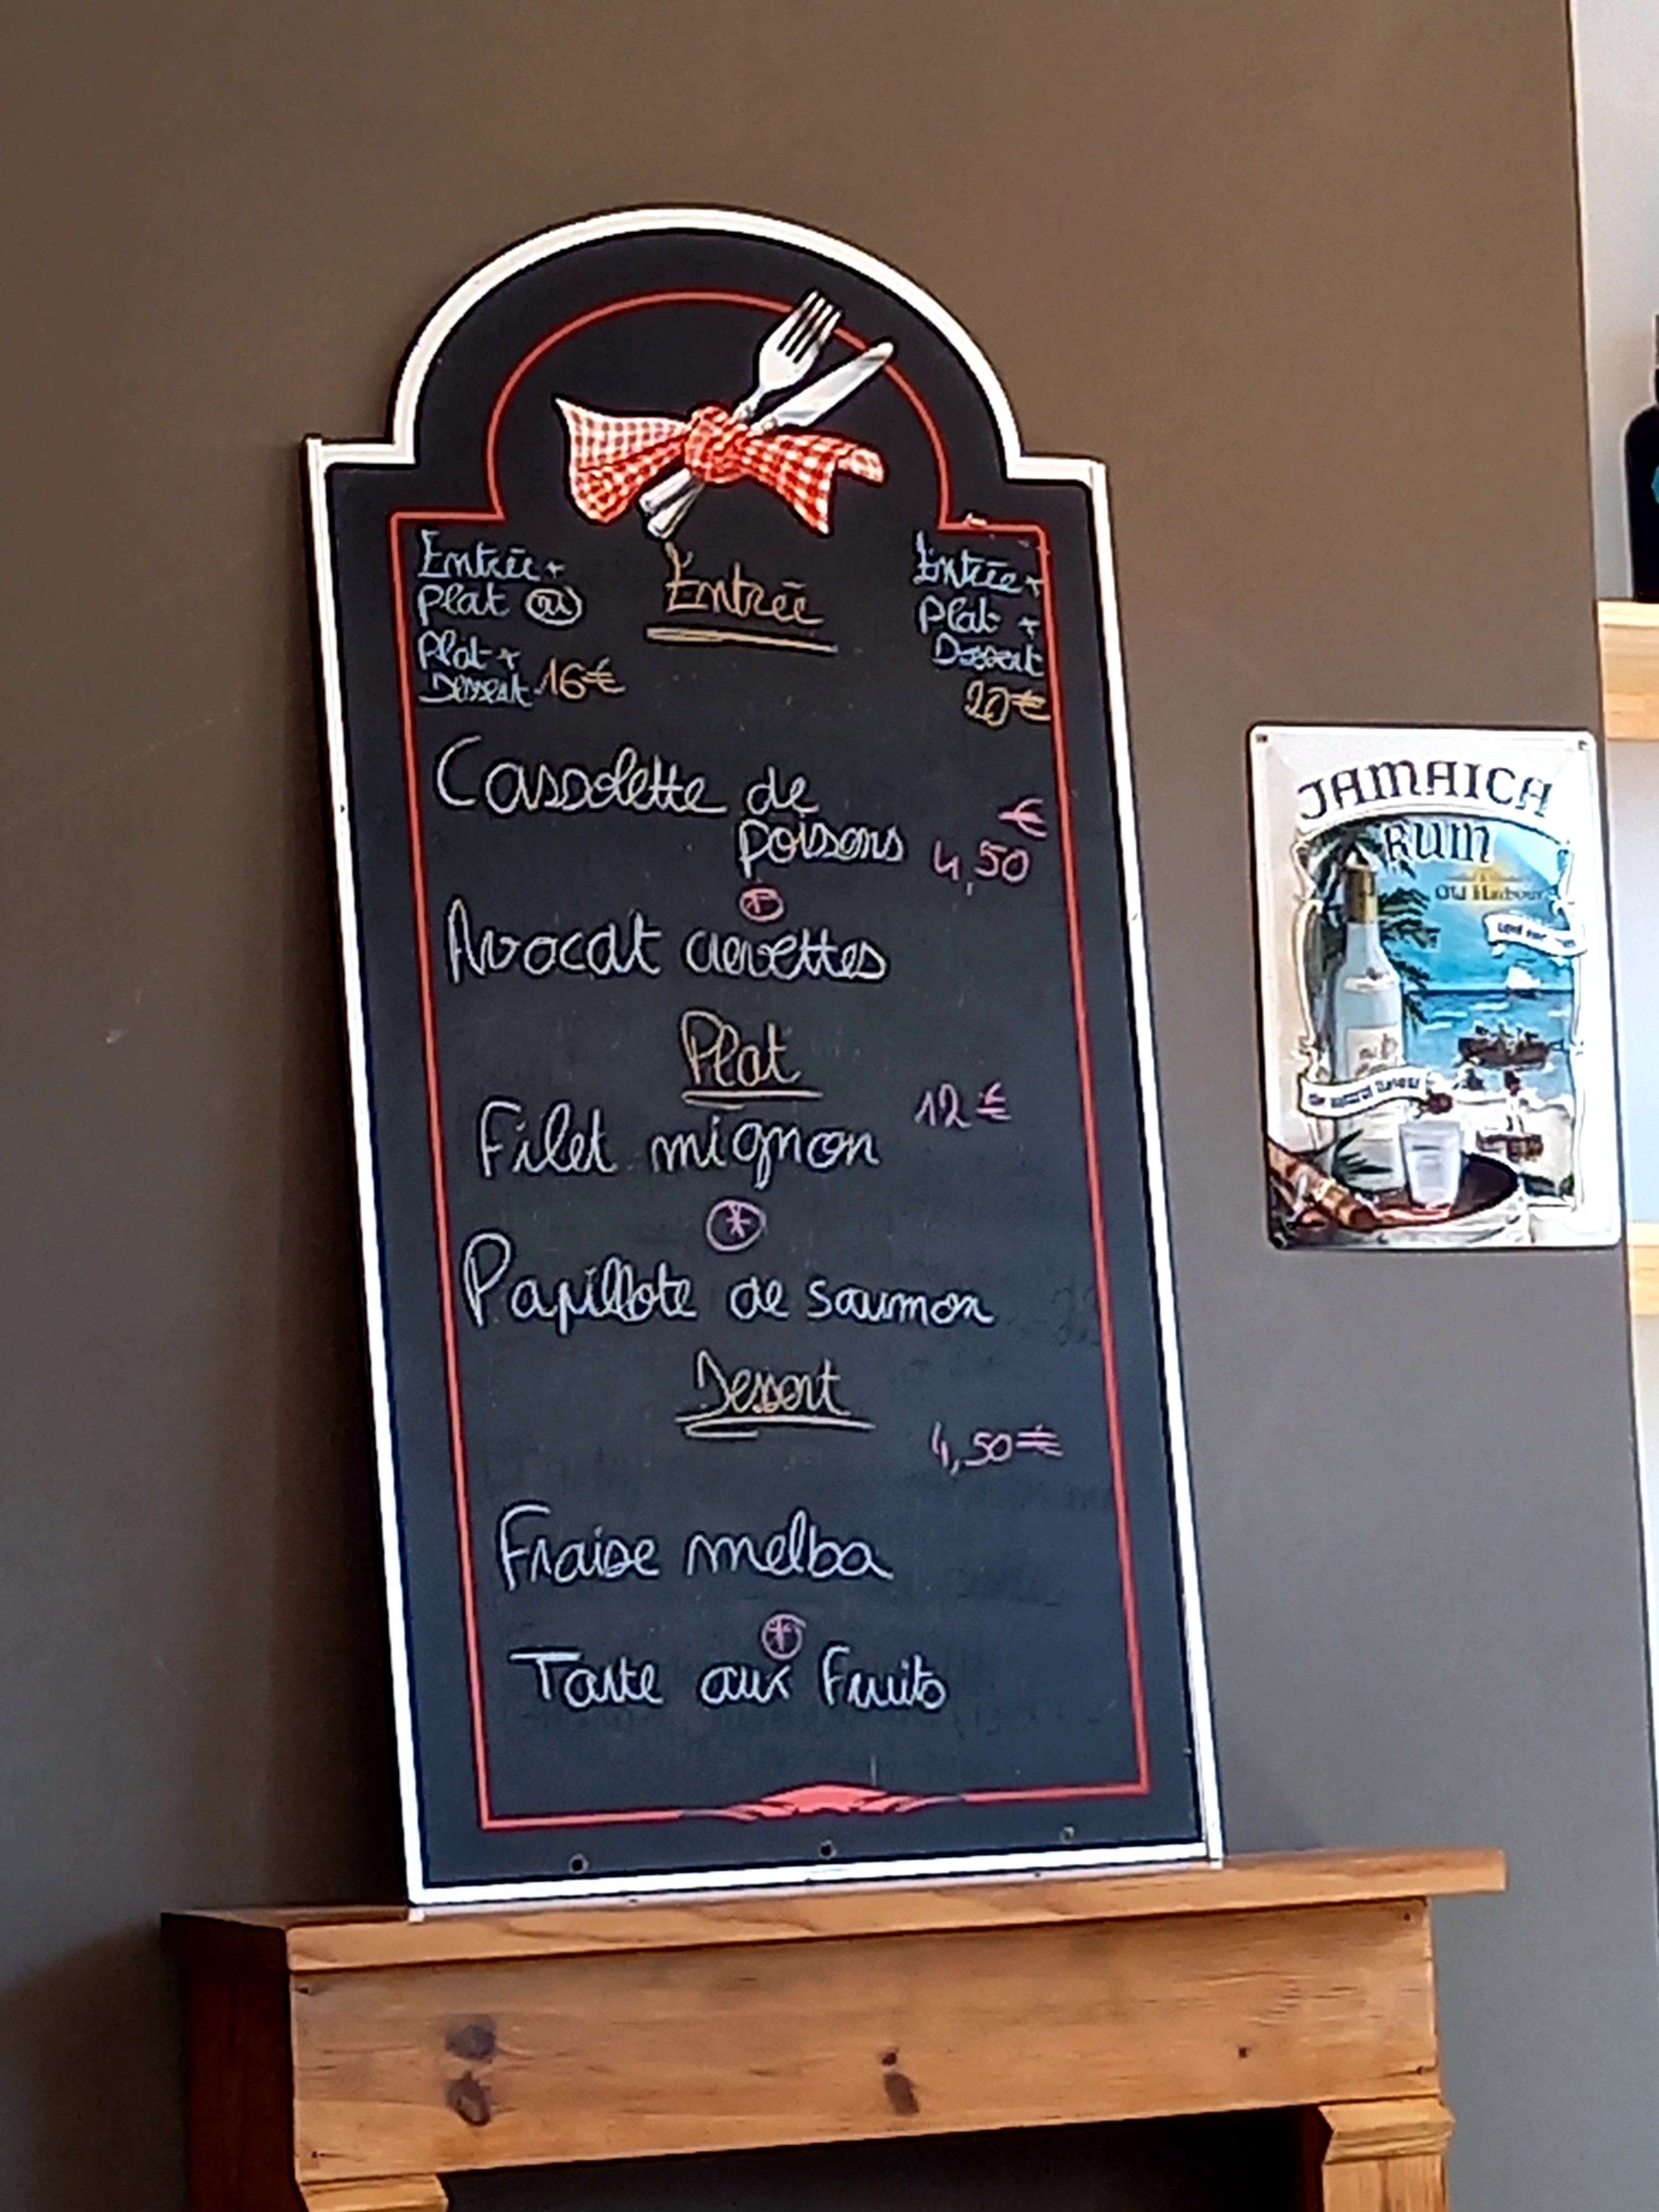 Entrée +
plat ou
Plat +
Dessert 16€
Entrée
Entrée +
Plat +
Dessert
20€
Cassolette de
poissons 4,50 €
Avocat crevettes
Plat
Filet mignon 12€
Papillote de saumon
Dessert
4,50€
Fraise melba
Tarte aux Fruits
JAMAICA
RUM
Old Harbour